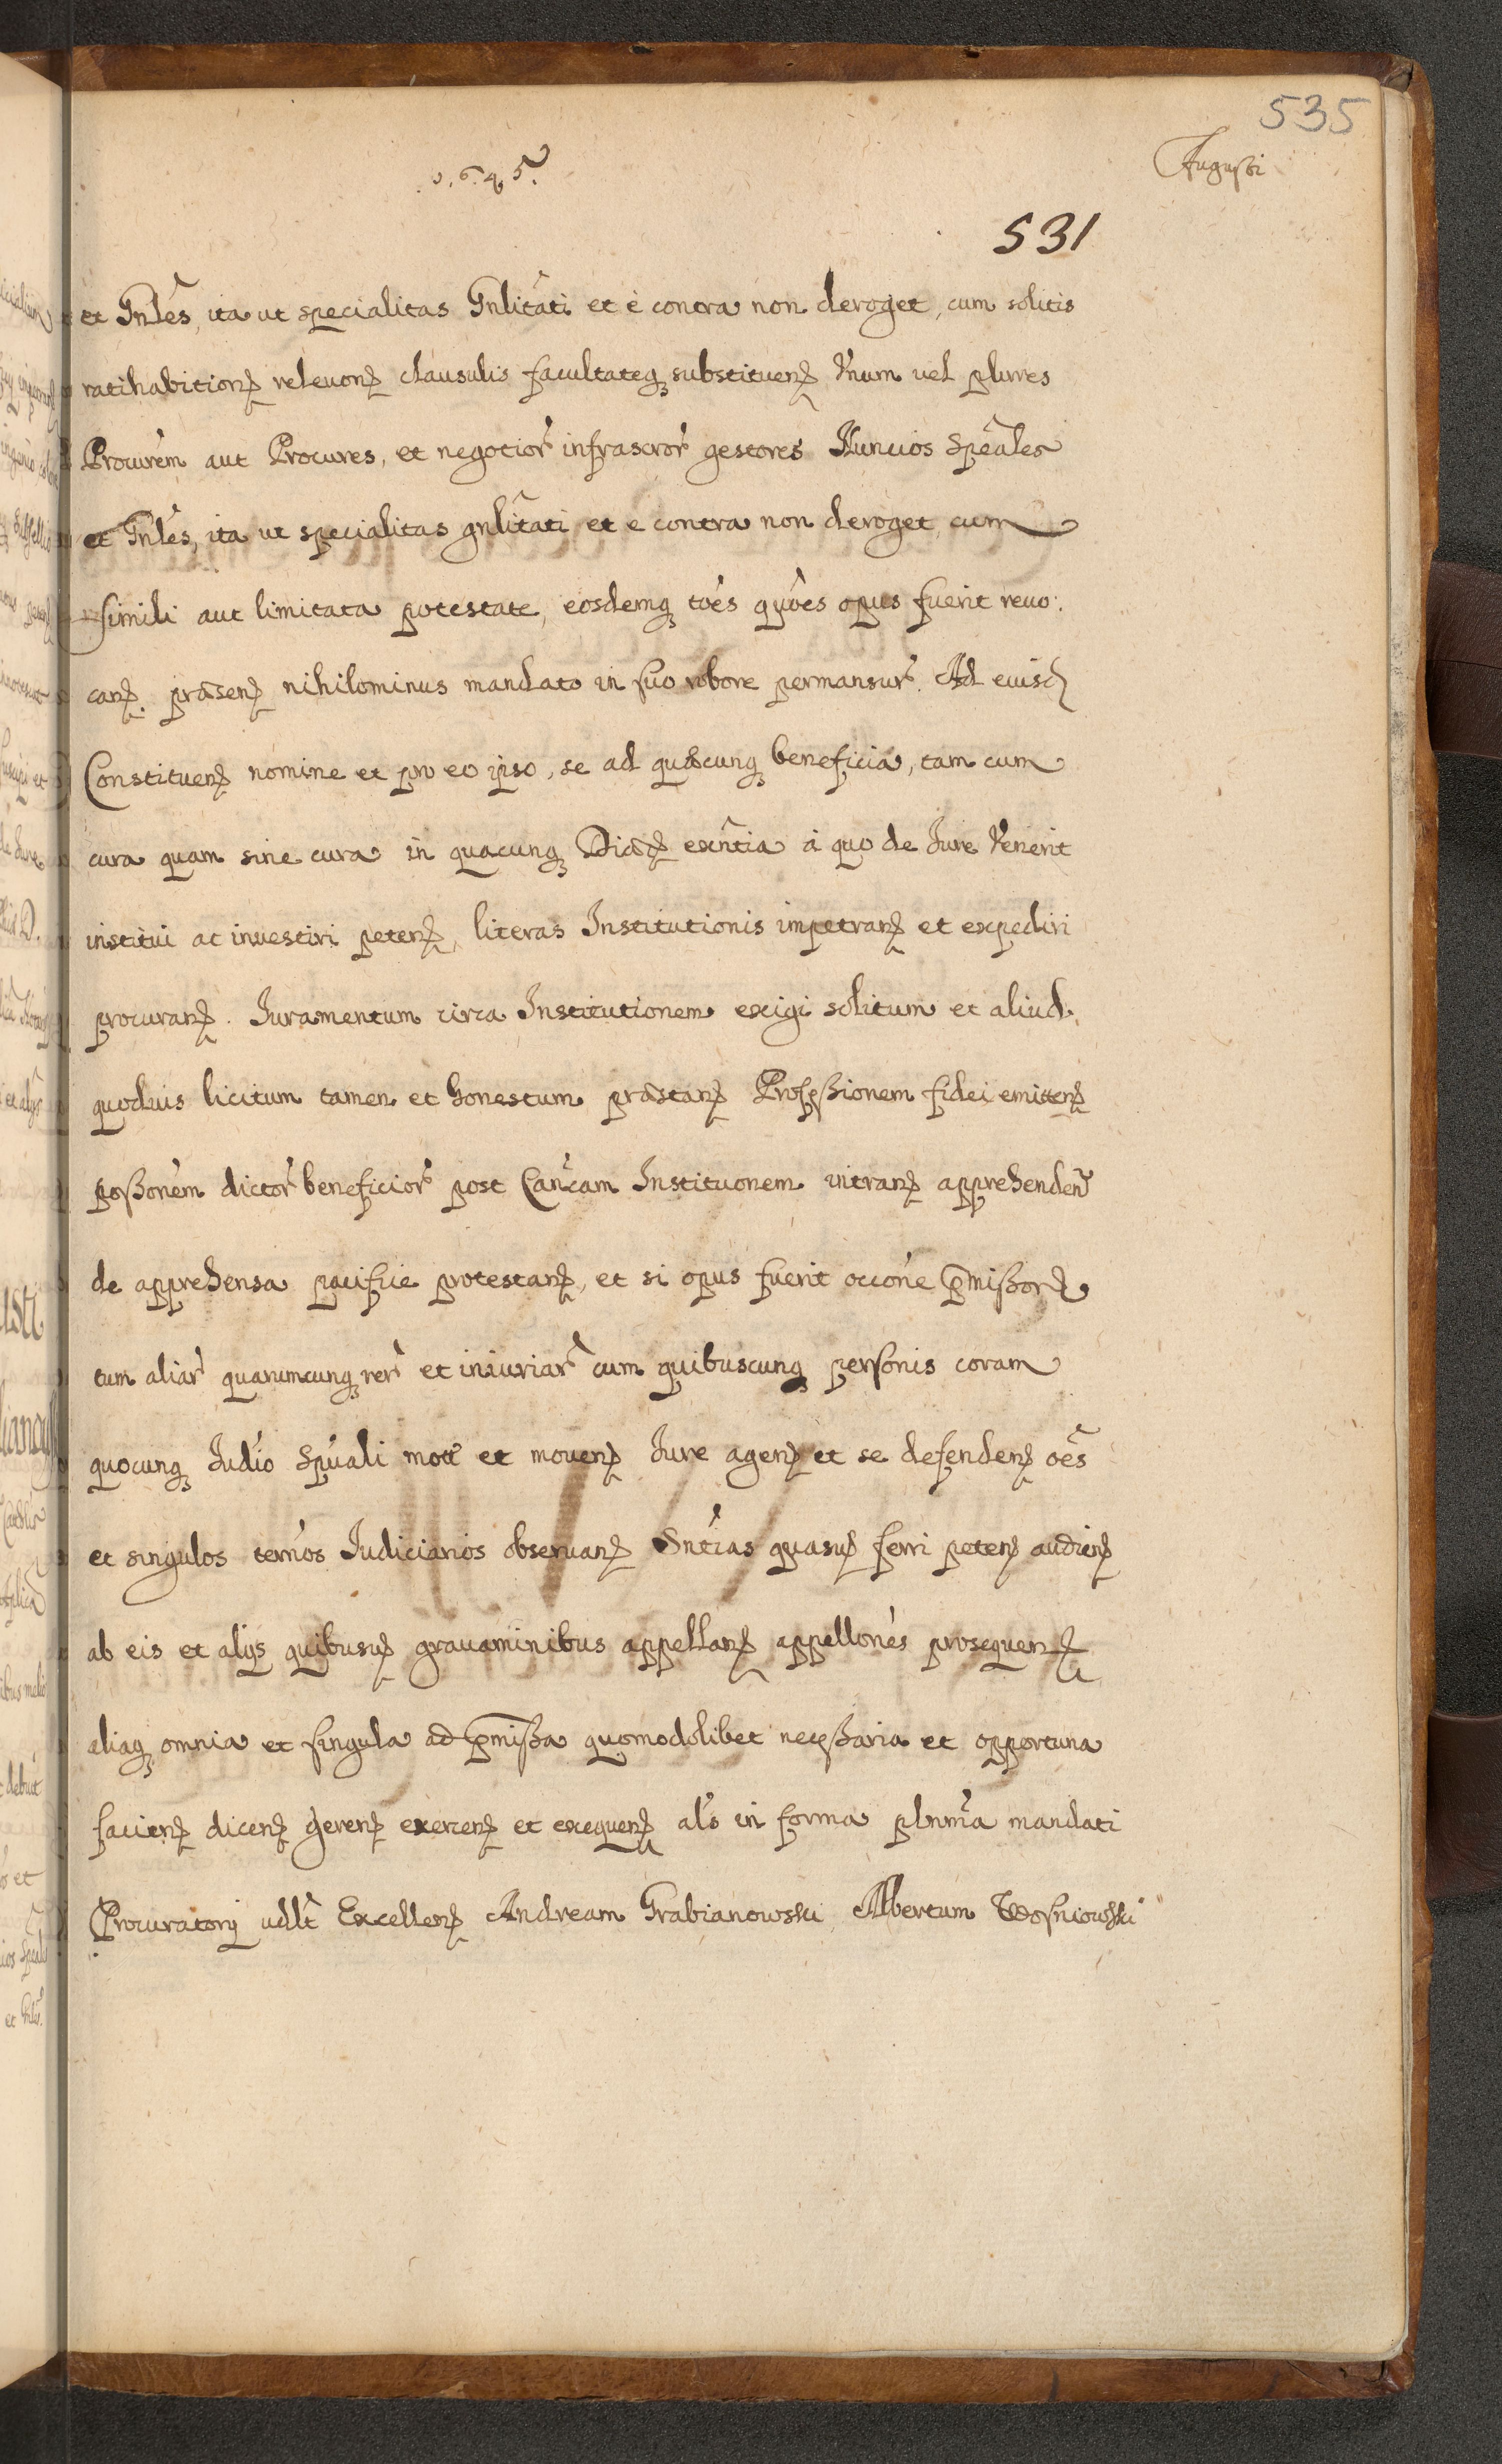 535
Augusti
1.6.4.5.
531
et Gnles, ita ut specialitas Gnlitati et è contra non deroget, cum solitis
ratihabition releuon clausulis facultateq substituen Vnum vel plures
Procurem aut Procures, et negotior infrascror gestores Nuncios Speales
et Gnles, ita ut specialitas gnlitati et e contra non deroget cum
simili aut limitata potestate, eosdemq toes quoes opus fuerit reuo:
can. præsen nihilominus mandato in suo robore permansur. Ad euisd
Constituen nomine et pro eo ipso, se ad quæcunq beneficia, tam cum
cura quam sine cura in quacunq Diæc exntia à quo de Iure Venerit
institui ac inuestiri peten, literas Institutionis impetran et expediri
procuran. Iuramentum circa Institutionem exigi solitum et aliud
quoduis licitum tamen et honestum præstan Professionem fidei emitten
possonem dictor beneficior post Cancam Instituonem intran apprehenden
de apprehensa pacifice protestan, et si opus fuerit occone pmissor
tum aliar quarumcunq rer et iniuriar cum quibuscunq personis coram
quocunq Iudio Spuali mot et mouen Iure agen et se defenden oes
et singulos termos Iudiciarios obseruan Sntias quasuis ferri peten audien
ab eis et alijs quibusuis grauaminibus appellan appellones prosequen
aliaq omnia et singula ad pmissa quomodolibet necessaria et opportuna
facien dicen geren exercen et exequen als in forma plnma mandati
Procuratorij vdlt Excellen Andream Grabianowski Albertum Wosniowski